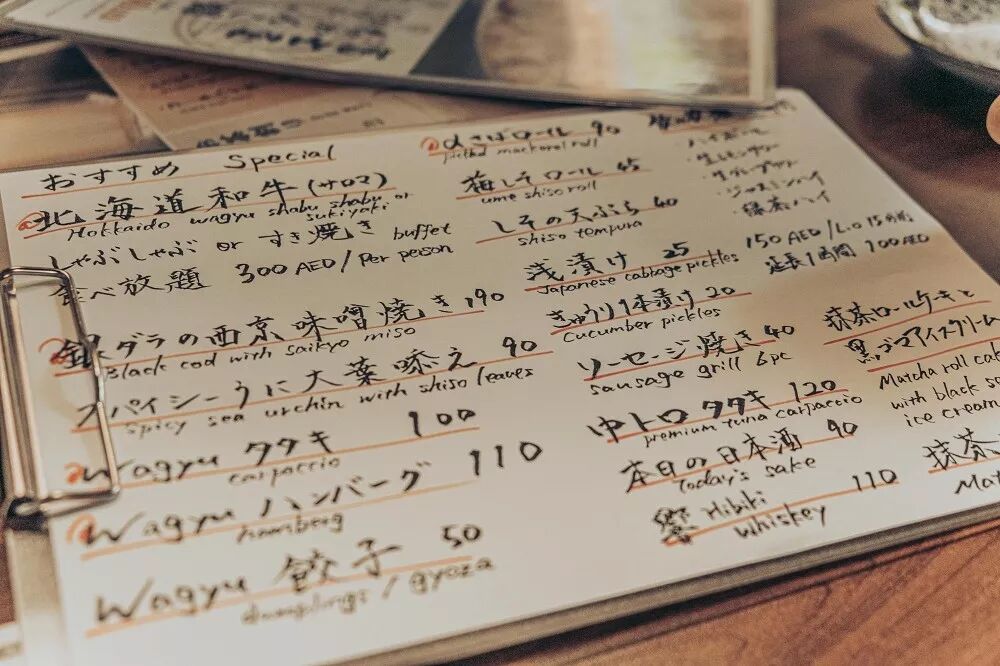 おすすめ Special
北海道和牛(サロマ)
Hokkaido wagyu shabu shabu or
sukiyaki
しゃぶしゃぶ or すき焼き buffet
食べ放題 300 AED/Per person
銀ダラの西京味噌焼き 190
Black cod with saikyo miso
スパイシーうに大葉添え 90
Spicy sea urchin with shiso leaves
Wagyu タタキ 100
carpaccio
Wagyu ハンバーグ 110
Wagyu 餃子 50
dumplings / gyoza
〆さばロール 90
mackerel roll
梅しそロール 45
ume shiso roll
しその天ぷら 40
shiso tempura
浅漬け 25
Japanese cabbage pickles
きゅうり1本漬け 20
Cucumber pickles
ソーセージ焼き 40
sausage grill 6pc
中トロタタキ 120
premium tuna carpaccio
本日の日本酒 90
Today's sake
響 Hibiki 110
Whiskey
・ハイボール
・ジャスミンハイ
・緑茶ハイ
150 AED/L.O 15
延長1時間 100 AED
抹茶ロールケーキと
黒ゴマアイスクリーム
Matcha roll
with black
ice cream
抹茶